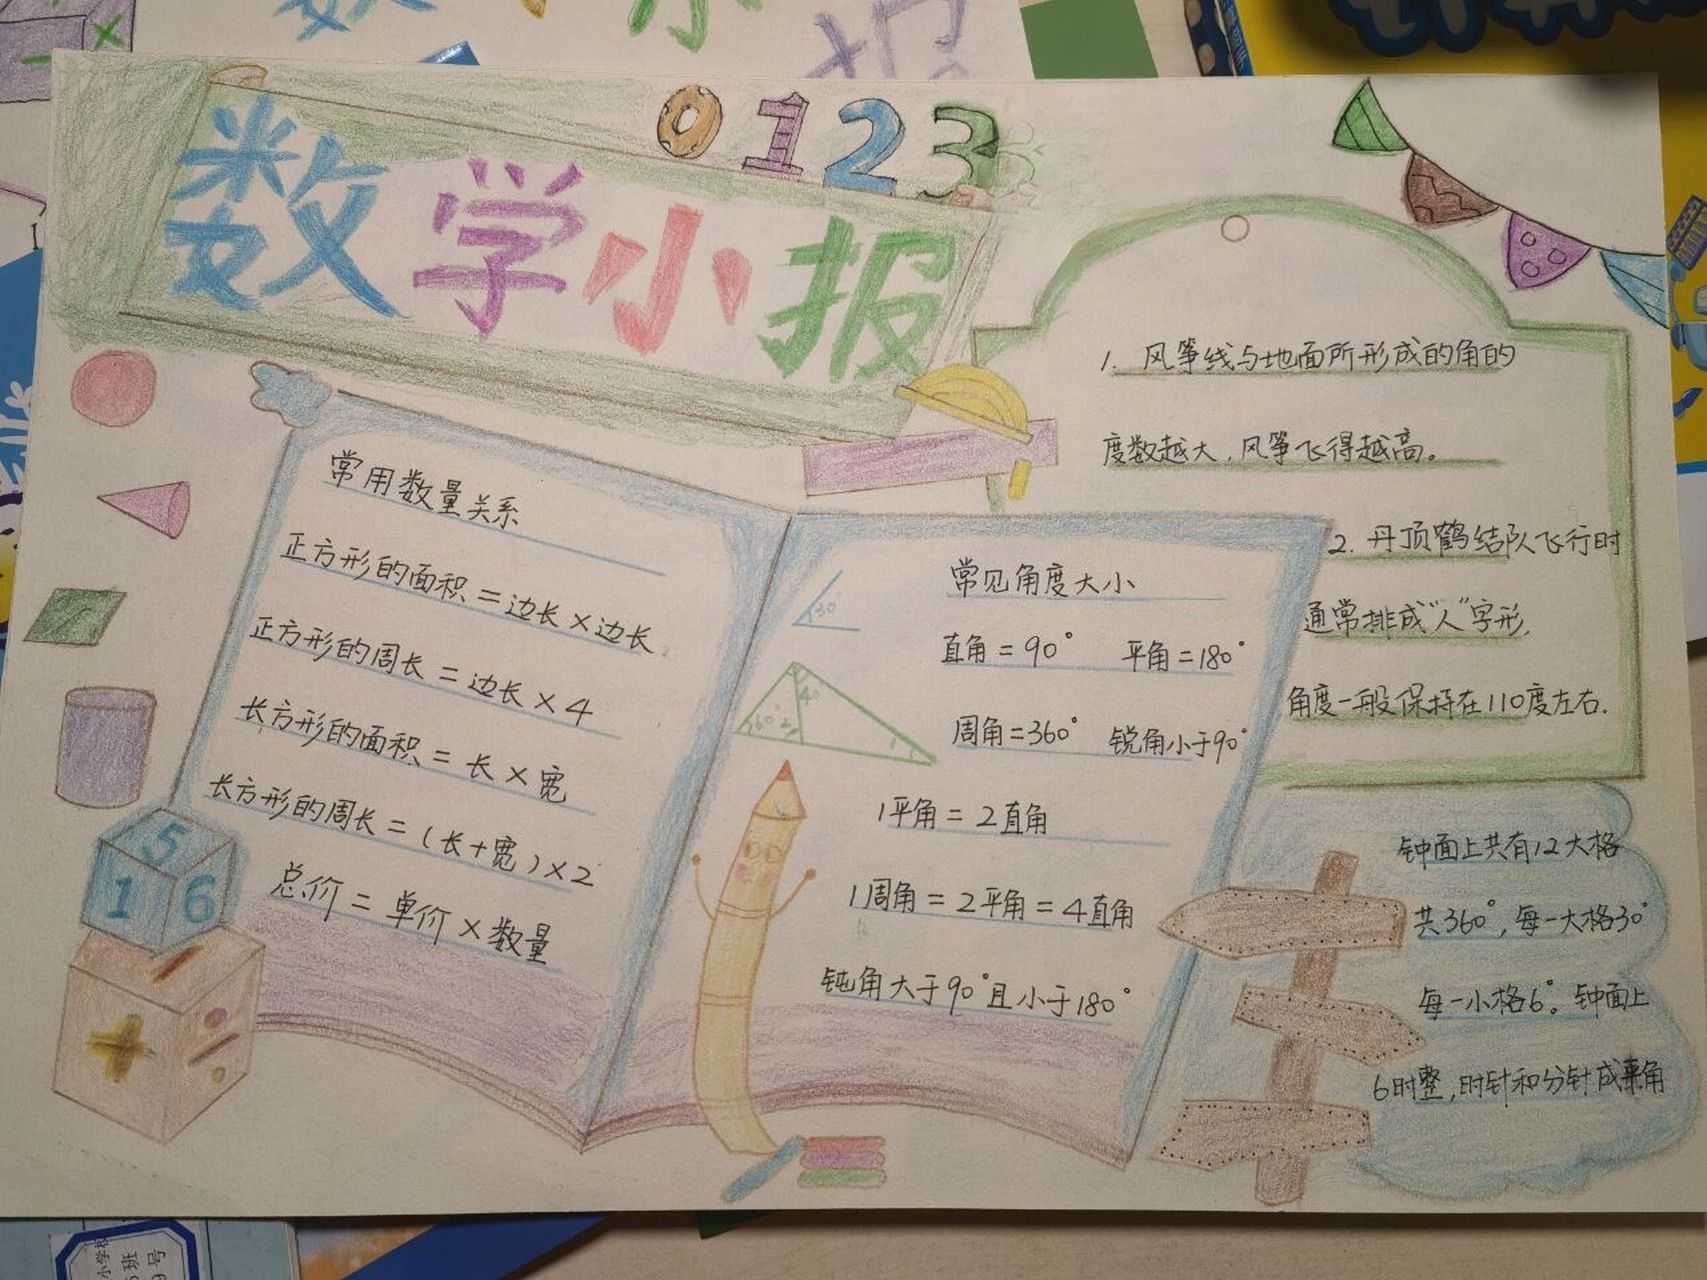 数学小报
0 1 2 3
常用数量关系
正方形的面积=边长×边长
正方形的周长=边长×4
长方形的面积=长×宽
长方形的周长=(长+宽)×2
总价=单价×数量
5
1 6
30°
常见角度大小
直角=90° 平角=180°
周角=360° 锐角小于90°
1平角=2直角
1周角=2平角=4直角
钝角大于90°且小于180°
40
60° 2
1
1. 风筝线与地面所形成的角的
度数越大,风筝飞得越高。
2. 丹顶鹤结队飞行时
通常排成“人”字形,
角度一般保持在110度左右.
钟面上共有12大格
共360°,每一大格30°
每一小格6°。钟面上
6时整,时针和分针成 角
小学校
班
号